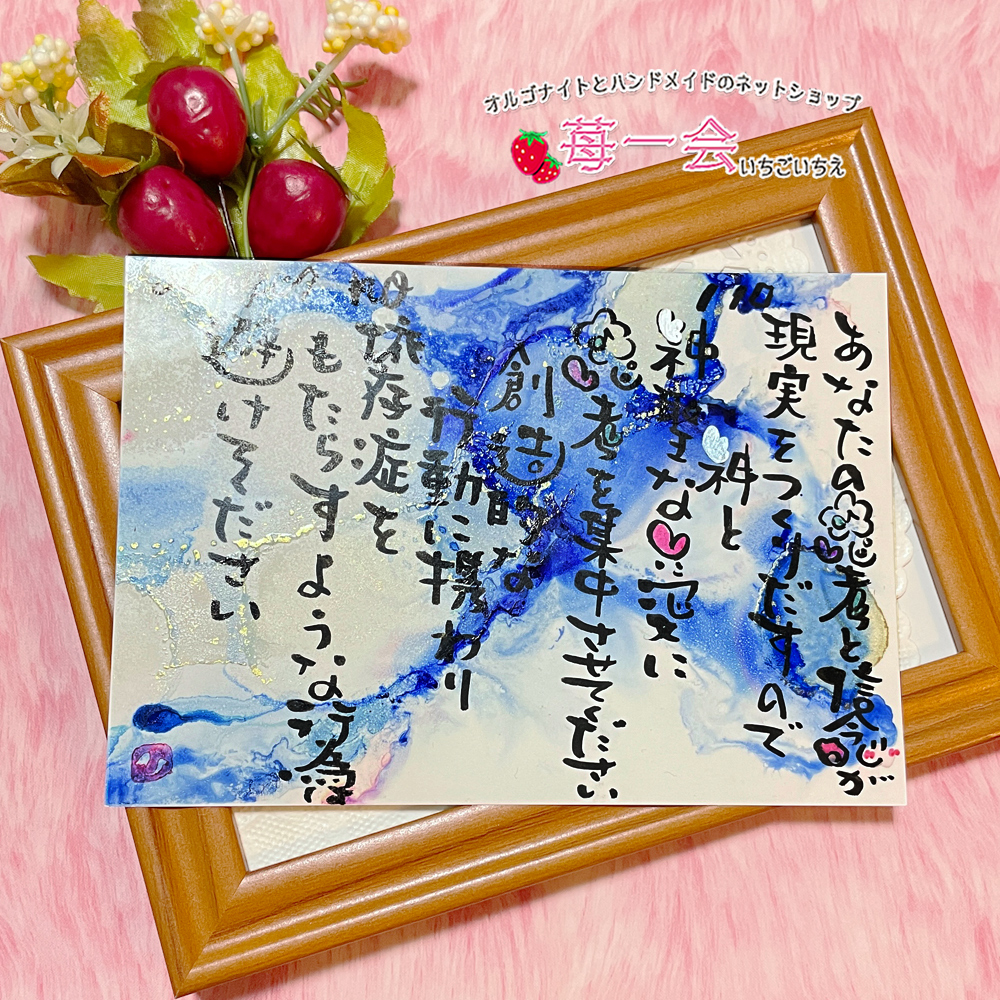 オルゴナイトとハンドメイドのネットショップ
苺一会
いちごいちえ
あなたの思考と信念が
現実をつくりだすので
神
神と
神聖な愛に
思考を集中させてください
創造的な
行動に携わり
依存症を
もたらすような行為
避けてください